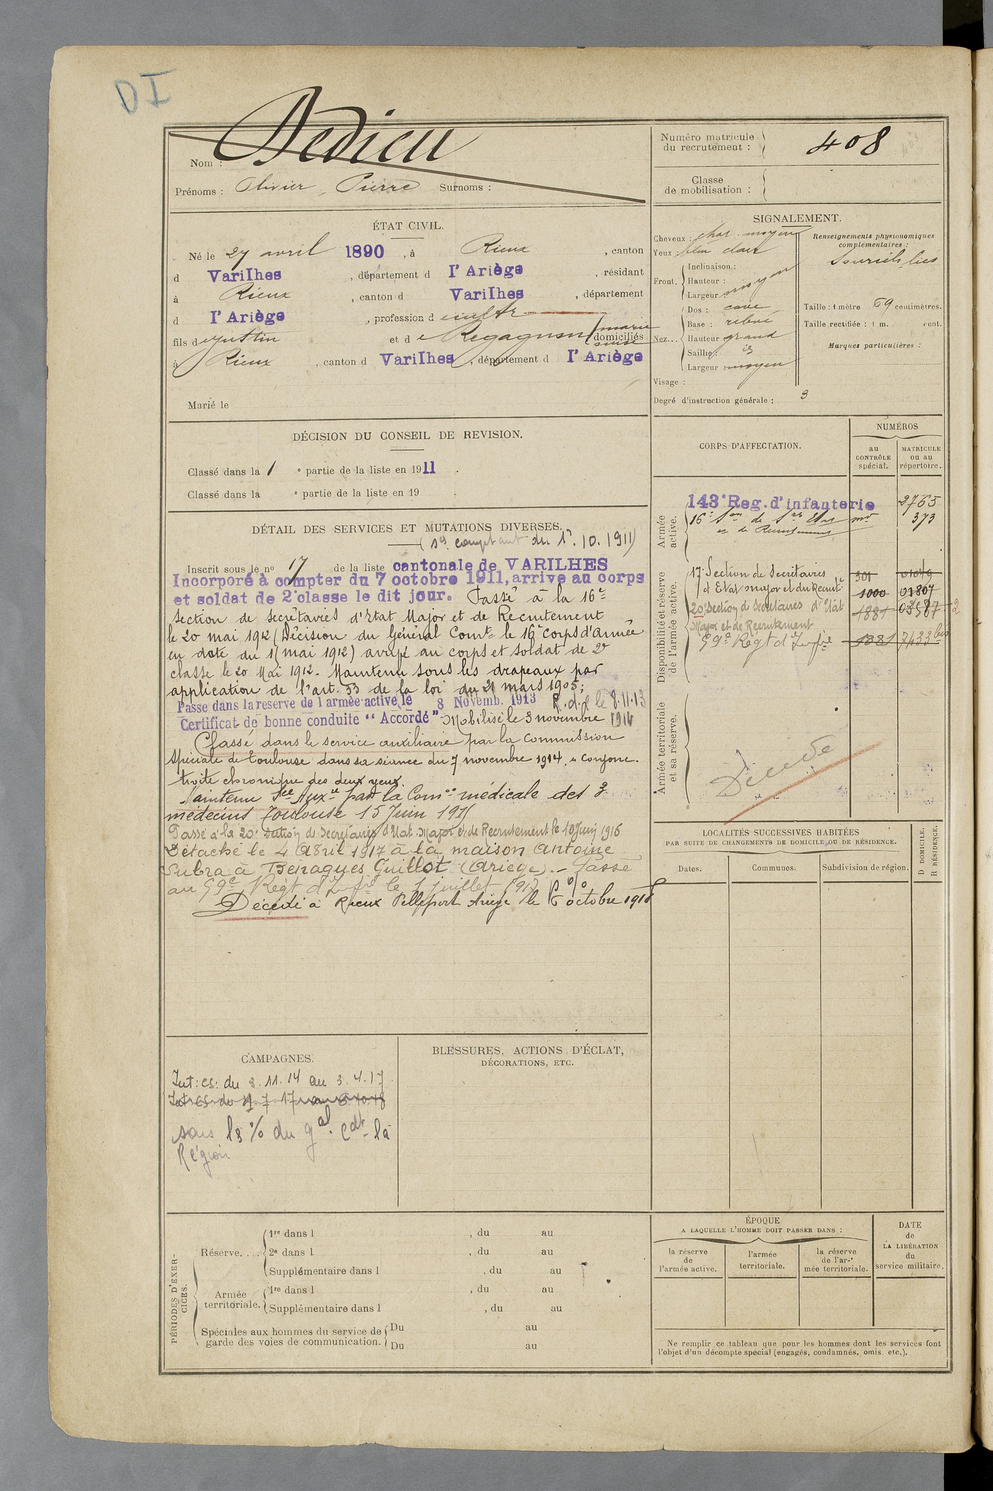 DI
Nom : Dedieu
Prénoms : Olivier, Pierre Surnoms :
Numéro matricule du recrutement : 408
Classe de mobilisation :
ÉTAT CIVIL.
Né le 27 avril 1890, à Rieux, canton
d Varilhes, département d l'Ariège, résidant
à Rieux, canton d Varilhes, département
d l'Ariège, profession d cultr
fils d Justin et d e Regagnon marie domiciliés
à Rieux, canton d Varilhes, département d l'Ariège
Marié le
SIGNALEMENT.
Cheveux : chat. moyen
Yeux bleu clair
Front. Inclinaison :
Hauteur :
Largeur moyen
Nez... Dos : cave
Base : relevé
Hauteur grand
Saillie :
Largeur moyen
Visage :
Renseignements physionomiques complémentaires :
Sourcils liés
Taille : 1 mètre 69 centimètres.
Taille rectifiée : 1 m. cent.
Marques particulières :
Degré d'instruction générale : 3
DÉCISION DU CONSEIL DE REVISION.
Classé dans la 1 e partie de la liste en 1911.
Classé dans la e partie de la liste en 19 .
DÉTAIL DES SERVICES ET MUTATIONS DIVERSES.
(Sce comptant du 1er.10.1911)
Inscrit sous le no 17 de la liste cantonale de VARILHES
Incorporé à compter du 7 octobre 1911, arrivé au corps
et soldat de 2e classe le dit jour. Passé à la 16e
section de secrétaires d'Etat Major et de Recrutement
le 20 mai 1912 (Décision du Général Comt le 16e corps d'Armée
en date du 1 mai 1912) arrivé au corps et soldat de 2e
classe le 20 Mai 1912. Maintenu sous les drapeaux par
application de l'art. 33 de la loi du 21 mars 1905;
Passé dans la réserve de l'armée active le 8 Novemb. 1913 R.d.f le 8.11.13
Certificat de bonne conduite "Accordé" Mobilisé le 3 novembre 1914
Classé dans le service auxiliaire par la Commission
spéciale de Toulouse dans sa séance du 7 novembre 1914. "conjonc-
tivite chronique des deux yeux.
Maintenu Sce Auxre par la Comon médicale des 3
médecins Toulouse 15 Juin 1915
Passé à la 20e Section de Secrétaires d'Etat Major et de Recrutement le 10 Juin 1916
Détaché le 4 Avril 1917 à la maison Antoine
Subra à Benagues Guillot (Ariège). - Passé
au 59e Régt d'Infie le 1 Juillet 1917
Décédé à Rieux Pelleport Ariège le octobre 1918
CORPS D'AFFECTATION.
NUMÉROS
au CONTRÔLE spécial.
MATRICULE ou au répertoire.
Armée active.
143e Reg. d'infanterie 2765
16e Son de Sres Etat mor 373
et de Recrutement
Disponibilité et réserve de l'armée active.
17e Section de Secrétaires 301
d'Etat major et du Recrutt 1000 01807
20e Section de Secrétaires d'Etat 1881
Major et de Recrutement
59e Régt d'Infie 1881 7433 bis
Armée territoriale et sa réserve.
Décédé
LOCALITÉS SUCCESSIVES HABITÉES
PAR SUITE DE CHANGEMENTS DE DOMICILE OU DE RÉSIDENCE.
Dates. Communes. Subdivision de région. D DOMICILE. R RÉSIDENCE.
CAMPAGNES.
Int: cs: du 3.11.14 au 3.4.17
sous le % du gal Cdt la
Région
BLESSURES, ACTIONS D'ÉCLAT,
DÉCORATIONS, ETC.
PÉRIODES D'EXERCICES.
Réserve.... 1re dans l , du au
2e dans l , du au
Supplémentaire dans l , du au
Armée territoriale. 1re dans l , du au
Supplémentaire dans l , du au
Spéciales aux hommes du service de garde des voies de communication. Du au
Du au
ÉPOQUE
A LAQUELLE L'HOMME DOIT PASSER DANS :
la réserve de l'armée active.
l'armée territoriale.
la réserve de l'armée territoriale.
DATE de LA LIBÉRATION du service militaire.
Ne remplir ce tableau que pour les hommes dont les services font
l'objet d'un décompte spécial (engagés, condamnés, omis, etc.).